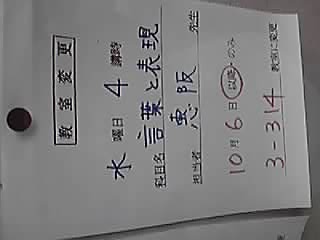 教室変更
水 曜日 4 講時
科目名 言葉と表現
担当者 恩阪 先生
10月6日 以降・のみ
3-314 教室に変更